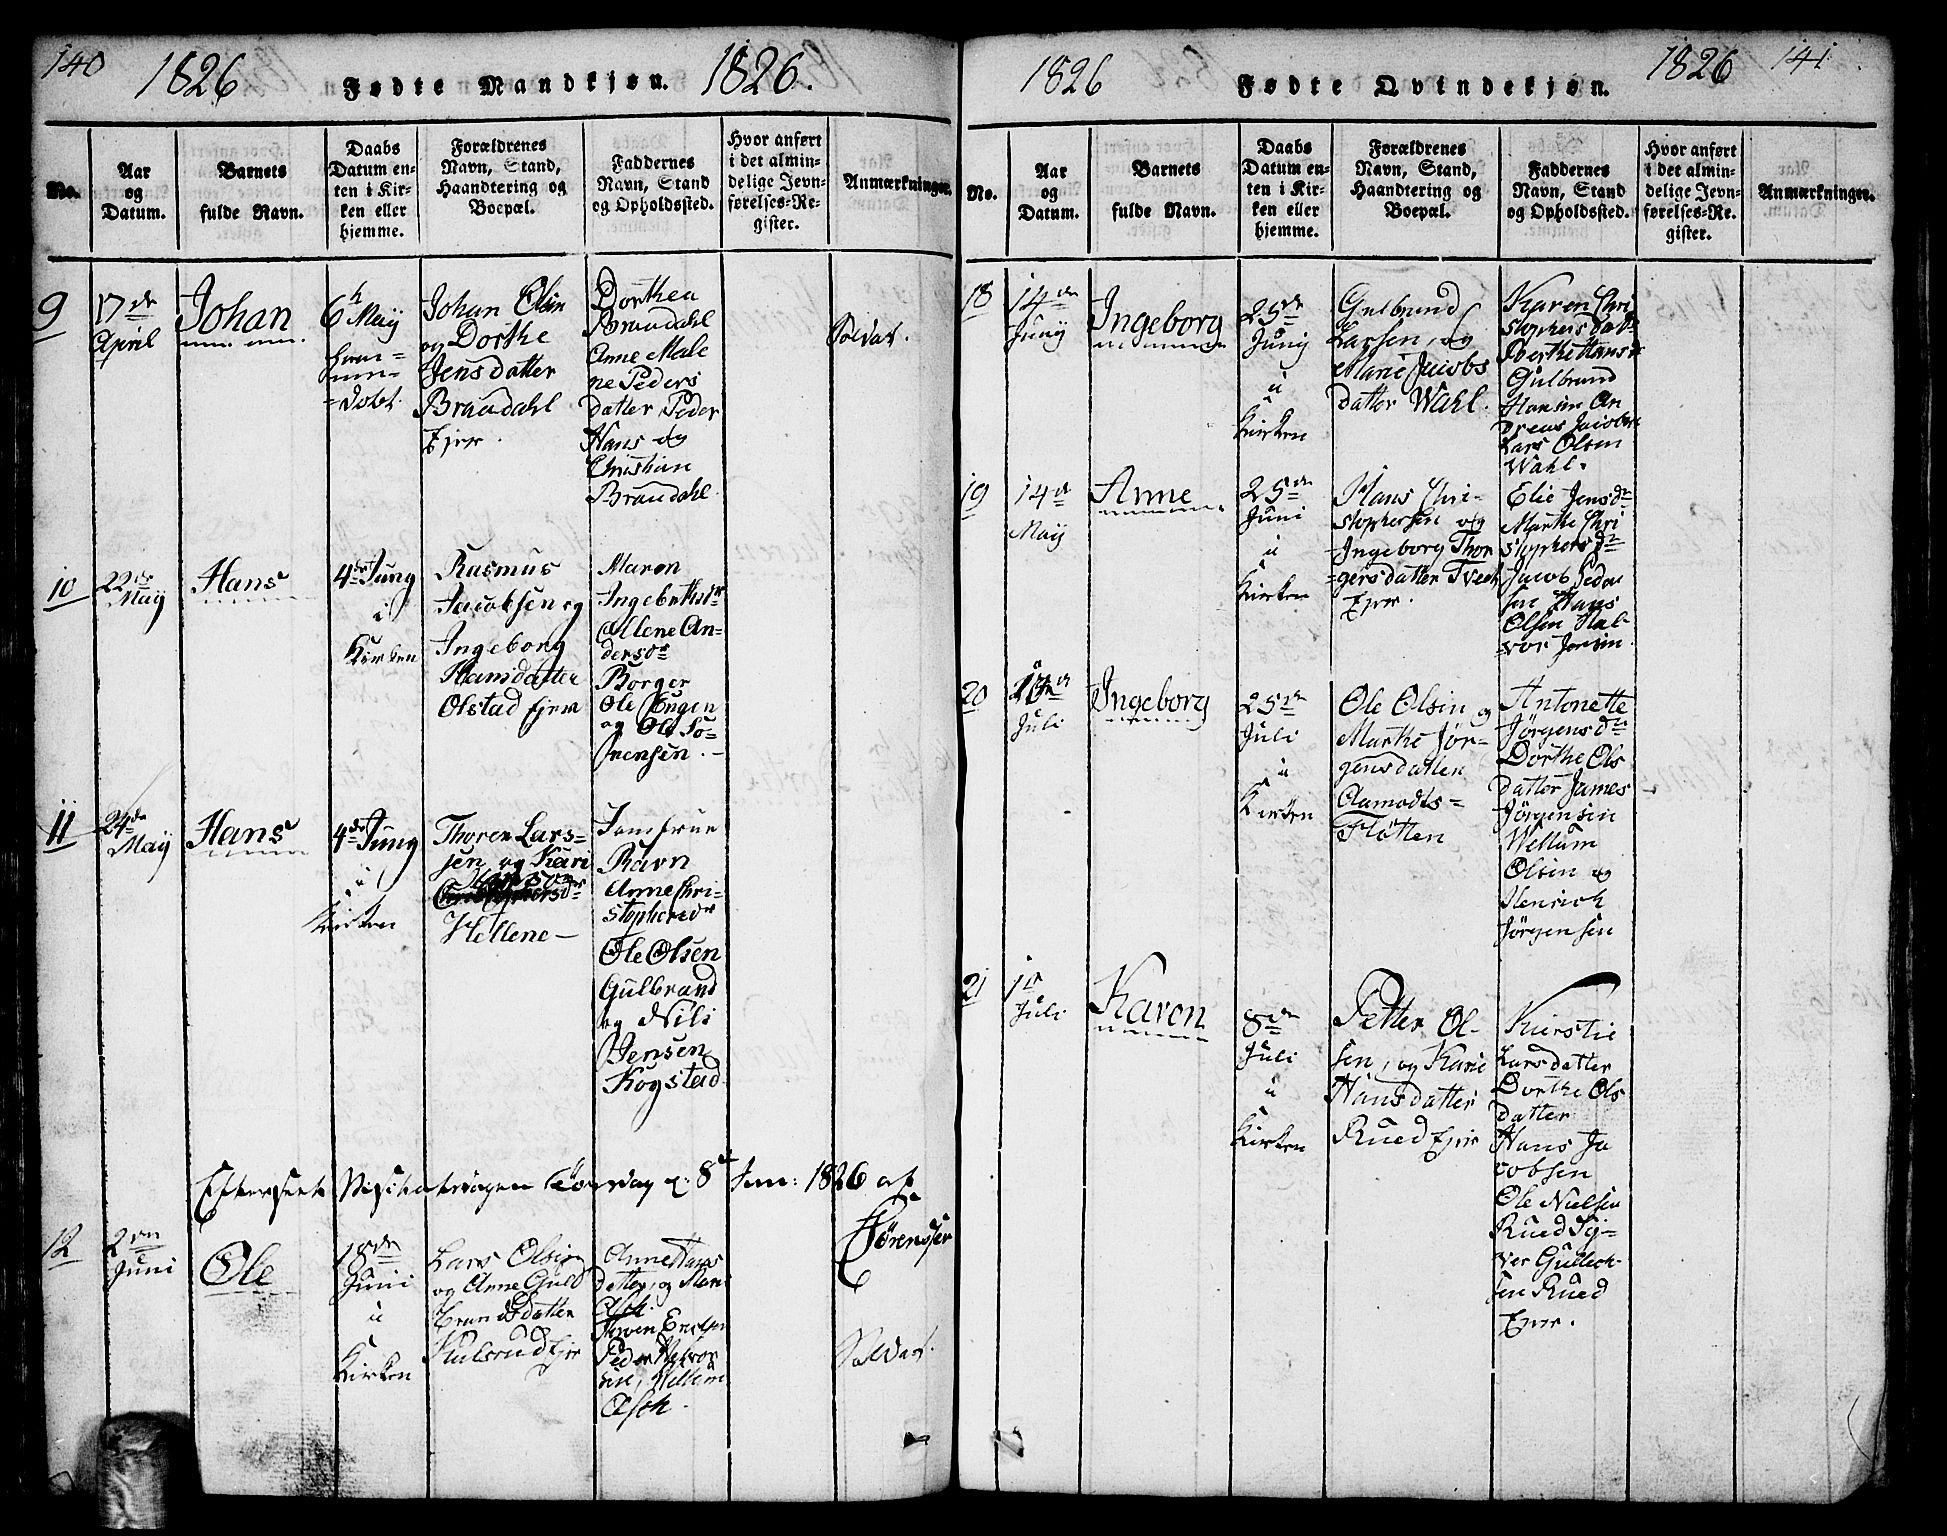 140
1826
Fødte Mandkjøn.
1826.
No.
Aar
og
Datum.
Barnets
fulde Navn.
Daabs
Datum en-
ten i Kir-
ken eller
hjemme.
Forældrenes
Navn, Stand,
Haandtering og
Boepæl.
Faddernes
Navn, Stand
og Opholdssted.
Hvor anført
i det almin-
delige Jevn-
førelses-Re-
gister.
Anmærkninger.
9
17de
April
Johan
6
May
Johan Olsen
og Dorthe
Jensdatter
Braadahl
Ejer.
Dorthea
Braadahl
Anne Male
ne Peders
datter Peder
Hans og
Christian
Braadahl
10
22de
May
Hans
4de Juny
i
Kirken
Rasmus
Jacobsen og
Ingeborg
Hansdatter
Olstad Ejer
Maren
Ingebrethsdr
Ollene An-
dersdr
Borger
Ole Engen
og Ole Sö-
rensen.
11
24de
May
Hans
4de Juny
i
Kirken
Thoren Lars-
sen og Kari
Hellene
Jomfrue
Ravn
Anne Chri-
stophersdr
Ole Olsen
Gulbrand
og Nils
Jensen
Kogstad
8de Jun: 1826 af
Sörenssen
12
2den
Juni
Ole
18de
Juni
i
Kirken
Lars Olsen
og Anne Guld
brandsdatter
Kulsrud Ejer
Anne Lars
datter, og Mari
Asch.
Ericksen
Peder Halvor
sen, Willum
Asch.
1826
Fødte Qvindekjøn.
1826
141
No.
Aar
og
Datum.
Barnets
fulde Navn.
Daabs
Datum en-
ten i Kir-
ken eller
hjemme.
Forældrenes
Navn, Stand,
Haandtering og
Boepæl.
Faddernes
Navn, Stand
og Opholdssted.
Hvor anført
i det almin-
delige Jevn-
førelses-Re-
gister.
Anmærkninger.
18
14de
Juny
Ingeborg
25de
Juny
i
Kirken
Gulbrand
Larsen, og
Marie Jacobs
datter Wahl.
Karen Chri
stophersdatr
Berthe Hansdr
Gulbrand
Hansen An
dreas Jacobsen
Lars Olsen
Wahl.
19
14de
May
Anne
25de
Juni
i
Kirken
Hans Chri-
stophersen og
Ingeborg Thor
gersdatter Tveet
Ejer.
Elie Jensdr
Marthe Chri
stophersdr
Jacob Peder
sen Hans
Olsen Hal-
vor Jensen
20
Juli
Ingeborg
25de
Juli
i
Kirken
Ole Olsen og
Marthe Jör-
gensdatter
Aamodts-
Flötten
Antonette
Jörgensdr
Dorthe Ols
datter James
Jörgensen
Wellum
Olsen og
Henrich
Jörgensen
21
1de
Juli
Karen
8de
Juli
i
Kirken
Petter Ol-
sen, og Karie
Hansdatter
Rued Ejer
Kierstie
Larsdatter
Dorthe Ols
datter
Hans Ja
cobsen
Ole Nielsen
Rued Sy-
ver Gullich-
sen Rued
Ejer.